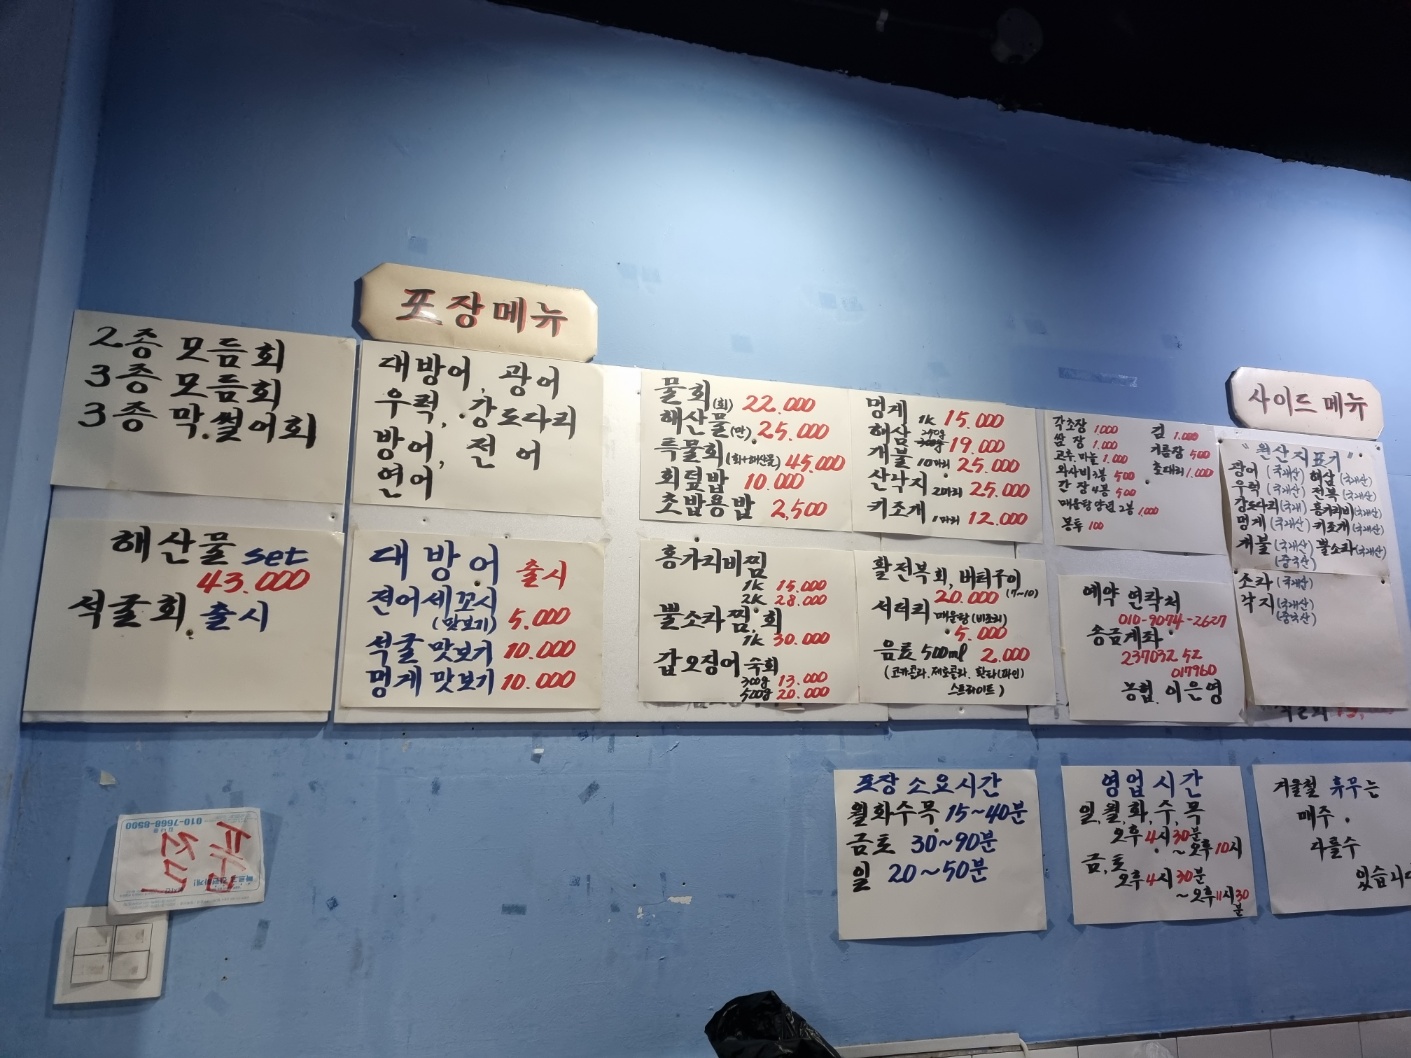 포장메뉴
2종 모듬회
3종 모듬회
3종 막.썰어회
대방어, 광어
우럭, 강도다리
방어, 전어
연어
해산물 set
43.000
석굴회 출시
대방어 출시
전어세꼬시
(맛보기) 5.000
석굴 맛보기 10.000
멍게 맛보기 10.000
물회(회) 22.000
해산물(만) 25.000
특물회(회+해산물) 45.000
회덮밥 10.000
초밥용밥 2,500
멍게 1k 15.000
해삼 19.000
개불 10마리 25.000
산낙지 2마리 25.000
키조개 1마리 12.000
홍가리비찜
1k 15.000
2k 28.000
뿔소라찜.회
1k 30.000
갑오징어 숙회
300g 13.000
500g 20.000
활전복회, 버터구이
20.000 (7~10)
서더리 매운탕(비조리)
5.000
음료 500ml 2.000
(코카콜라. 제로콜라. 환타(파인)
스프라이트)
사이드 메뉴
각초장 1000
쌈장 1.000
고추.마늘 1.000
와사비3봉 500
간장4봉 500
매운탕양념 2봉 1,000
봉투 100
김 1.000
기름장 500
초대리 1.000
"원산지표기"
광어 (국내산) 해삼 (국내산)
우럭 (국내산) 전복 (국내산)
강도다리 (국내) 홍가리비 (국내산)
멍게 (국내산) 키조개 (국내산)
개불 (국내산) 뿔소라 (국내산)
(중국산)
소라 (국내산)
낙지 (국내산)
(중국산)
예약 연락처
010-9074-2627
송금계좌
237032 52
017960
농협. 이은영
포장 소요시간
월화수목 15~40분
금토 30~90분
일 20~50분
영업시간
일,월,화,수,목
오후4시30분
~오후10시
금,토
오후4시30분
~오후11시30
분
겨울철 휴무는
매주
있습니다
010-7668-8500